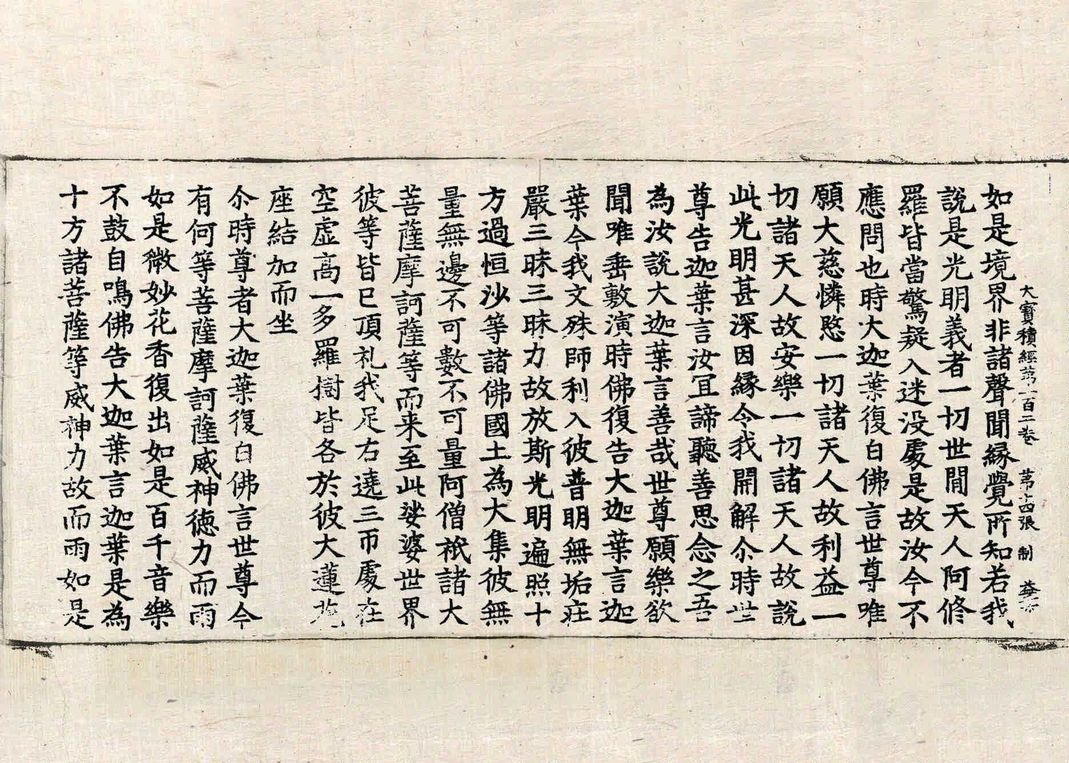 大寶積經第一百二卷 第十四張 制
如是境界非諸聲聞緣覺所知若我
說是光明義者一切世間天人阿修
羅皆當驚疑入迷沒處是故汝今不
應問也時大迦葉復白佛言世尊唯
願大慈憐愍一切諸天人故利益一
切諸天人故安樂一切諸天人故說
此光明甚深因緣令我開解尒時世
尊告迦葉言汝冝諦聽善思念之吾
為汝說大迦葉言善哉世尊願樂欲
聞唯垂敷演時佛復告大迦葉言迦
葉今我文殊師利入彼普明無垢莊
嚴三昧三昧力故放斯光明遍照十
方過恒沙等諸佛國土為大集彼無
量無邊不可數不可量阿僧祇諸大
菩薩摩訶薩等而来至此娑婆世界
彼等皆已頂礼我足右遶三帀處在
空虛高一多羅樹皆各於彼大蓮花
座結加而坐
尒時尊者大迦葉復白佛言世尊今
有何等菩薩摩訶薩威神德力而雨
如是微妙花香復出如是百千音樂
不鼓自鳴佛告大迦葉言迦葉是為
十方諸菩薩等威神力故而雨如是